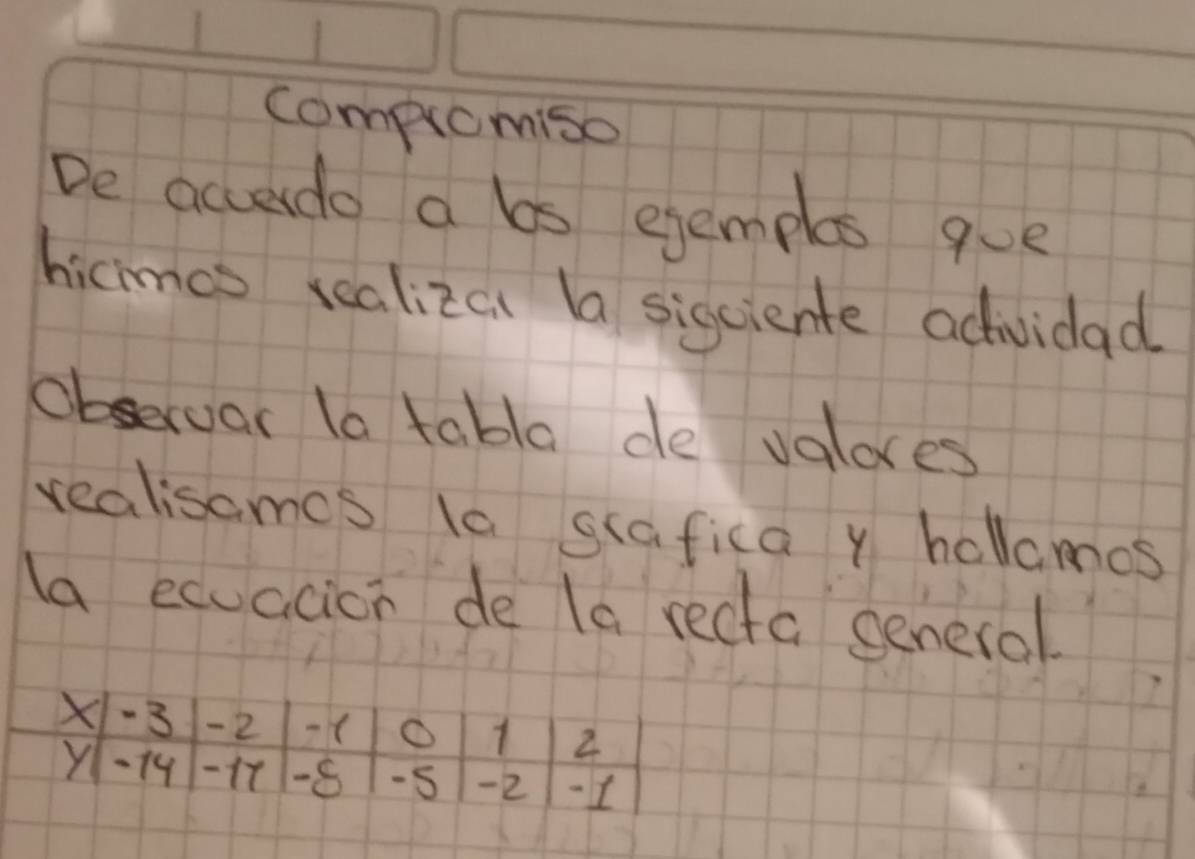 Compromiso
De acuerdo a los ejemplos que
hicimos realizar la siguiente actividad
Observar la tabla de valores
realisamos la grafica y hallamos
la ecuación de la recta general
X -3 -2 -1 0 1 2
Y -14 -11 -8 -5 -2 -1